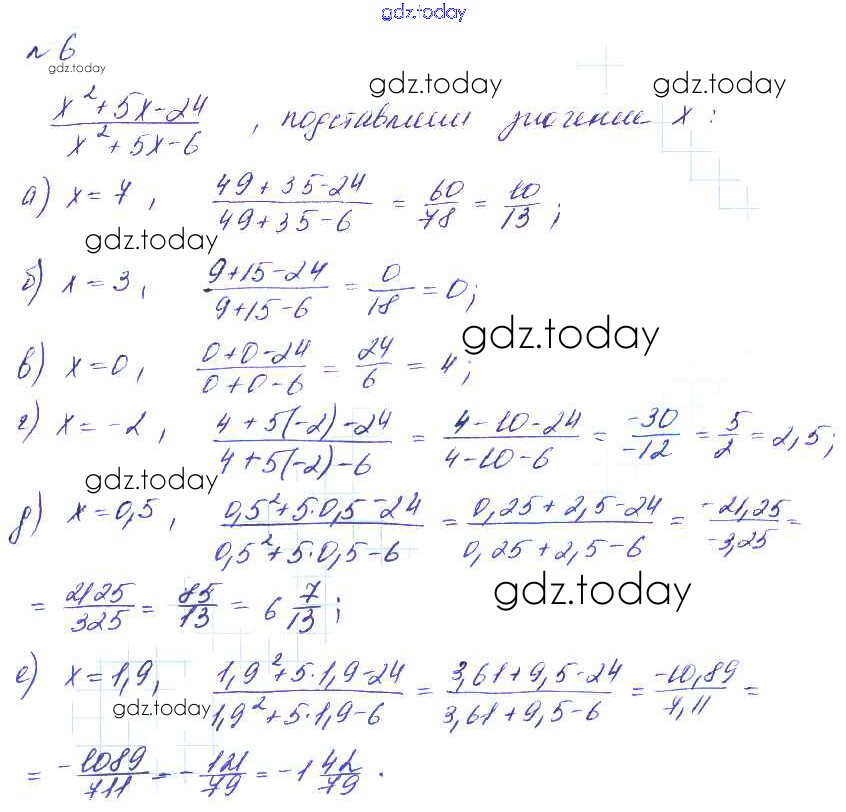 gdz.today
№ 6
gdz.today
gdz.today
gdz.today
(x² + 5x - 24)/(x² + 5x - 6) , подставляем значение x :
а) x = 7 , (49 + 35 - 24)/(49 + 35 - 6) = 60/78 = 10/13 ;
gdz.today
б) x = 3 , (9 + 15 - 24)/(9 + 15 - 6) = 0/18 = 0 ;
gdz.today
в) x = 0 , (0 + 0 - 24)/(0 + 0 - 6) = 24/6 = 4 ;
г) x = -2 , (4 + 5(-2) - 24)/(4 + 5(-2) - 6) = (4 - 10 - 24)/(4 - 10 - 6) = -30/-12 = 5/2 = 2,5 ;
gdz.today
д) x = 0,5 , (0,5² + 5·0,5 - 24)/(0,5² + 5·0,5 - 6) = (0,25 + 2,5 - 24)/(0,25 + 2,5 - 6) = -21,25/-3,25 =
= 2125/325 = 85/13 = 6 7/13 ;
gdz.today
е) x = 1,9 , (1,9² + 5·1,9 - 24)/(1,9² + 5·1,9 - 6) = (3,61 + 9,5 - 24)/(3,61 + 9,5 - 6) = -10,89/7,11 =
gdz.today
= -1089/711 = -121/79 = -1 42/79 .